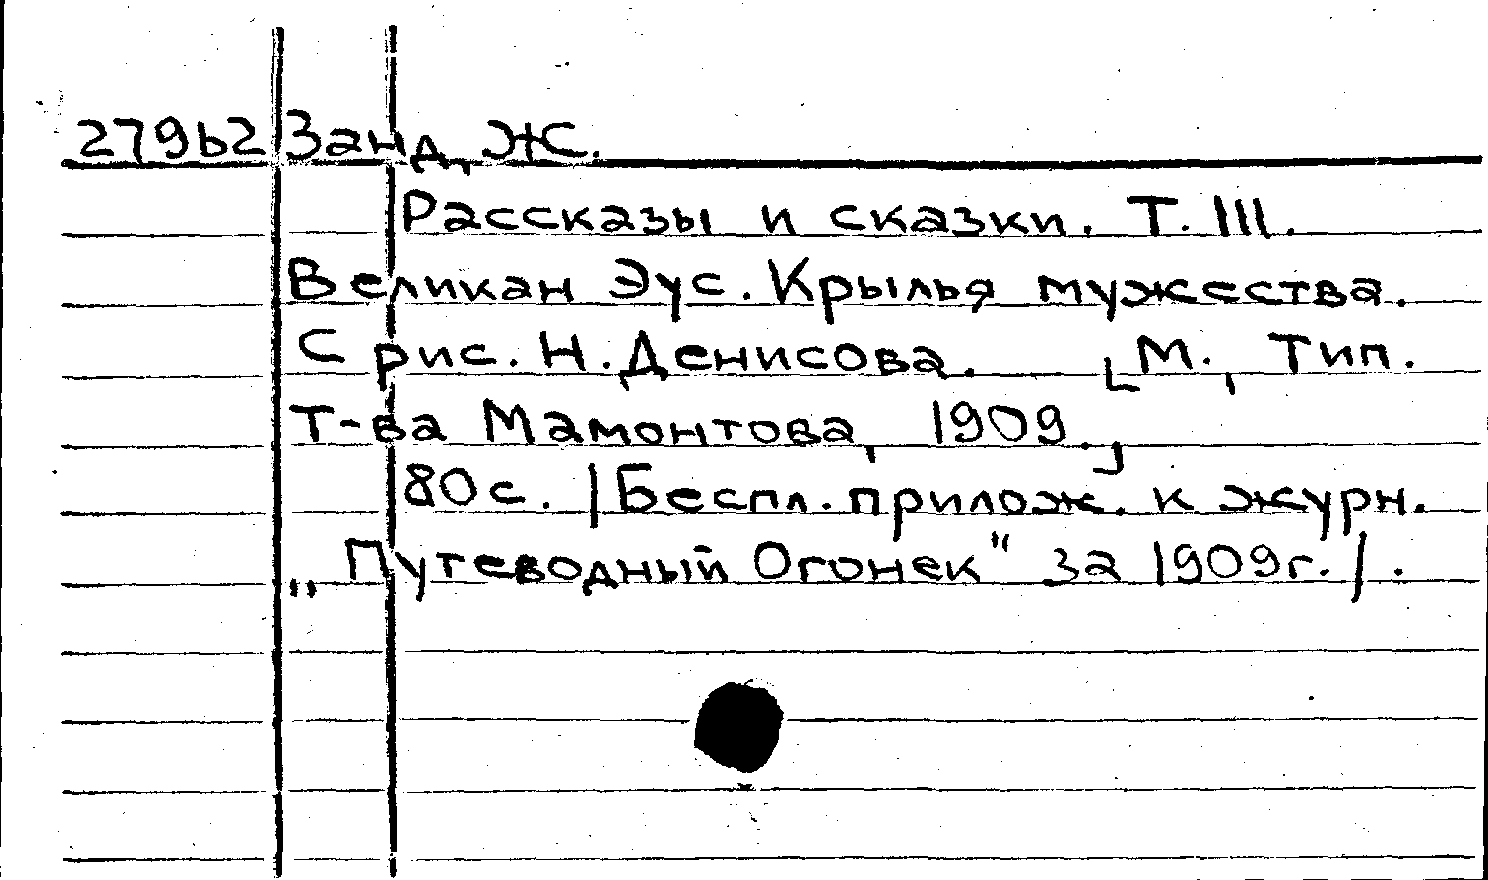 279b2 Занд, Ж.
Рассказы и сказки. Т. III.
Великан Эус. Крылья мужества.
С рис. Н. Денисова. [М., Тип.
Т-ва Мамонтова, 1909.]
80 с. /Беспл. прилож. к журн.
„Путеводный Огонек" за 1909г./.